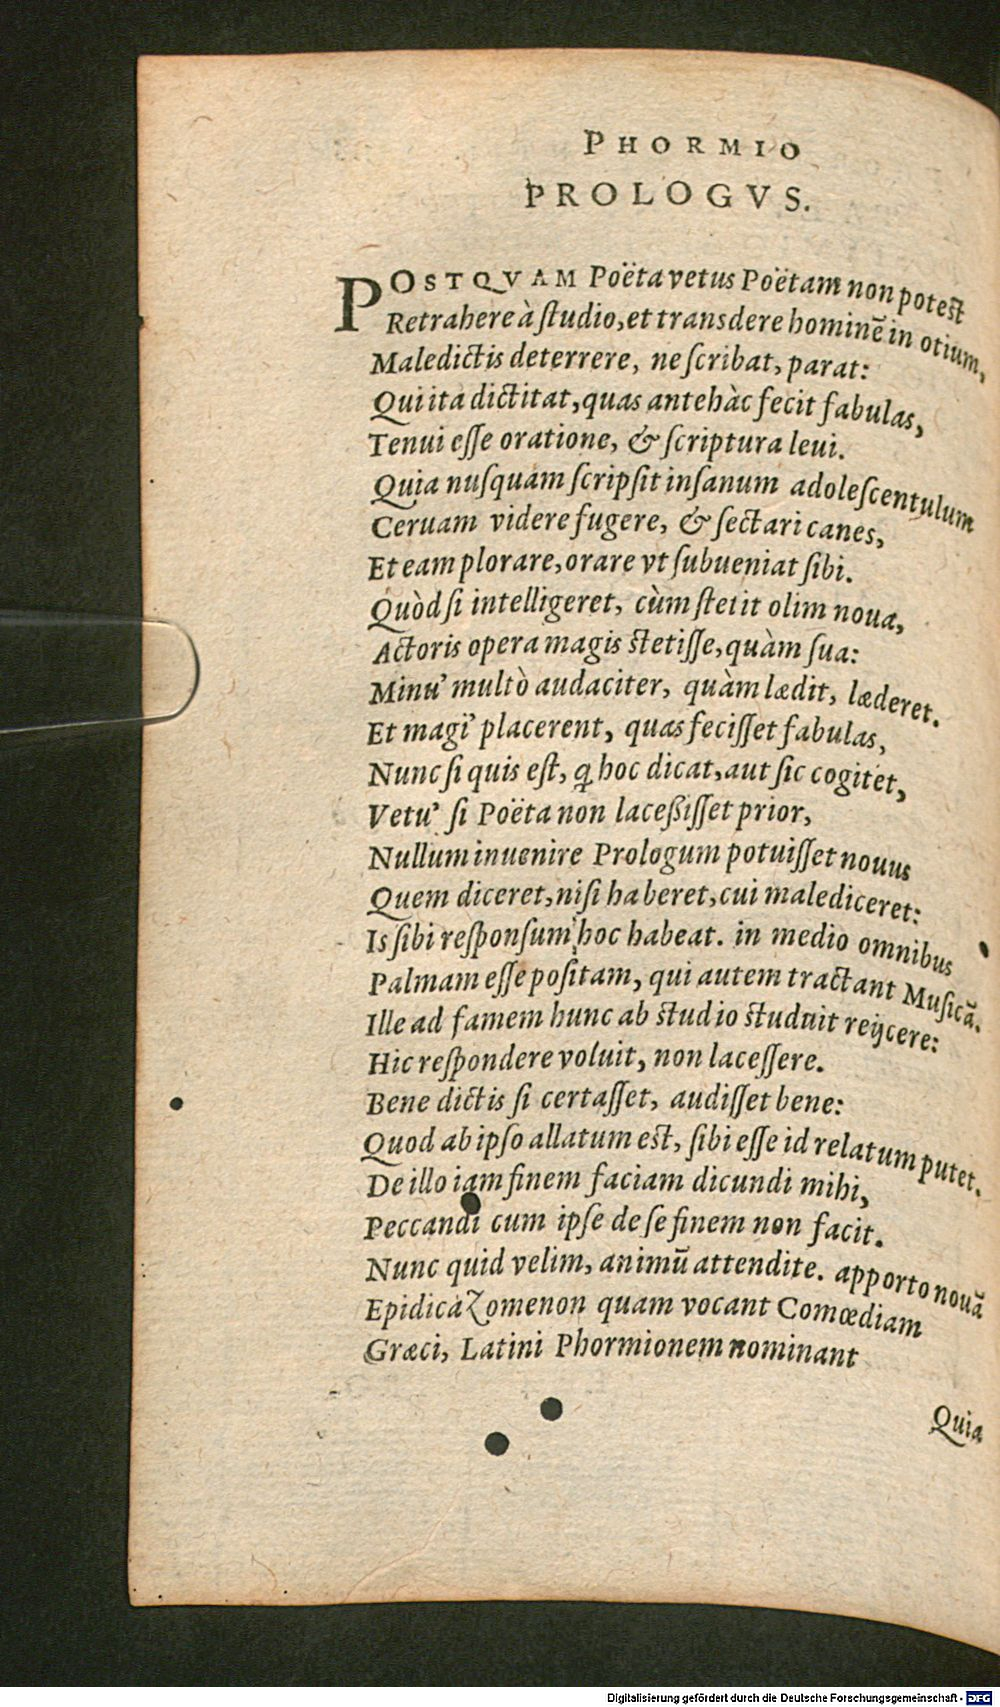 PHORMIO
PROLOGVS.
POSTQVAM Poëta vetus Poëtam non potest
Retrahere à studio, et transdere hominē in otium,
Maledictis deterrere, ne scribat, parat:
Qui ita dictitat, quas antehàc fecit fabulas,
Tenui esse oratione, & scriptura leui.
Quia nusquam scripsit insanum adolescentulum
Ceruam videre fugere, & sectari canes,
Et eam plorare, orare vt subueniat sibi.
Quòd si intelligeret, cùm stetit olim noua,
Actoris opera magis stetisse, quàm sua:
Minu' multò audaciter, quàm lædit, læderet.
Et magi' placerent, quas fecisset fabulas,
Nunc si quis est, ꝗ hoc dicat, aut sic cogitet,
Vetu' si Poëta non laceßisset prior,
Nullum inuenire Prologum potuisset nouus
Quem diceret, nisi haberet, cui malediceret:
Is sibi responsum hoc habeat. in medio omnibus
Palmam esse positam, qui autem tractant Musicā.
Ille ad famem hunc ab studio studuit reijcere:
Hic respondere voluit, non lacessere.
Bene dictis si certasset, audisset bene:
Quod ab ipso allatum est, sibi esse id relatum putet.
De illo iam finem faciam dicundi mihi,
Peccandi cum ipse de se finem non facit.
Nunc quid velim, animū attendite. apporto nouā
Epidicazomenon quam vocant Comœdiam
Græci, Latini Phormionem nominant
Quia
Digitalisierung gefördert durch die Deutsche Forschungsgemeinschaft - DFG